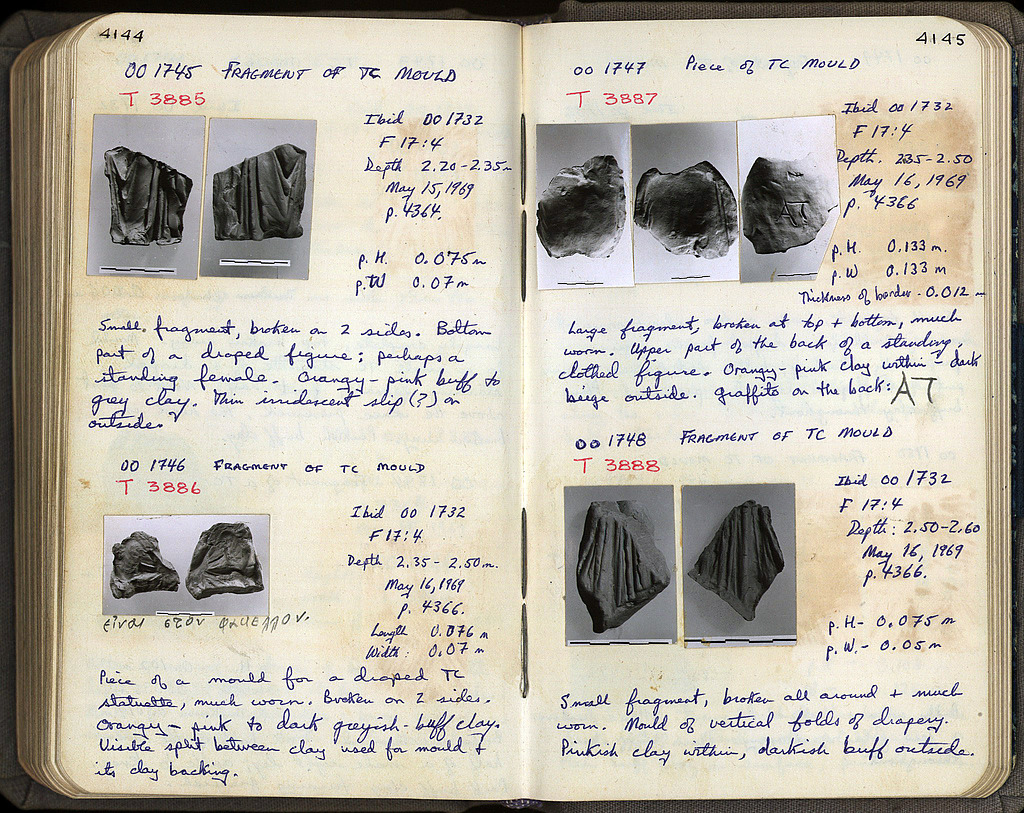 4144
OO 1745 FRAGMENT OF TC MOULD
T 3885
Ibid OO 1732
F 17:4
Depth 2.20-2.35m
May 15, 1969
p. 4364.
p. H. 0.075 m
p. W 0.07 m
Small fragment, broken on 2 sides. Bottom
part of a draped figure; perhaps a
standing female. Orangy-pink buff to
grey clay. Thin irridescent slip (?) on
outside.
OO 1746 FRAGMENT OF TC MOULD
T 3886
Ibid OO 1732
F 17:4
Depth 2.35 - 2.50 m.
May 16, 1969
p. 4366.
Length 0.076 m
Width: 0.07 m
εἶναι στὸν φάκελλον.
Piece of a mould for a draped TC
statuette, much worn. Broken on 2 sides.
Orangy-pink to dark greyish-buff clay.
Visible split between clay used for mould +
its clay backing.
4145
OO 1747 Piece of TC MOULD
T 3887
Ibid OO 1732
F 17:4
Depth. 2.35-2.50
May 16, 1969
p. 4366
AT
p. H. 0.133 m.
p. W 0.133 m
Thickness of border - 0.012 m
Large fragment, broken at top + bottom, much
worn. Upper part of the back of a standing,
clothed figure. Orangy-pink clay within - dark
beige outside. Graffito on the back: AT
OO 1748 FRAGMENT OF TC MOULD
T 3888
Ibid OO 1732
F 17:4
Depth: 2.50-2.60
May 16, 1969
p. 4366.
p. H- 0.075 m
p. W.- 0.05 m
Small fragment, broken all around + much
worn. Mould of vertical folds of drapery.
Pinkish clay within, darkish buff outside.